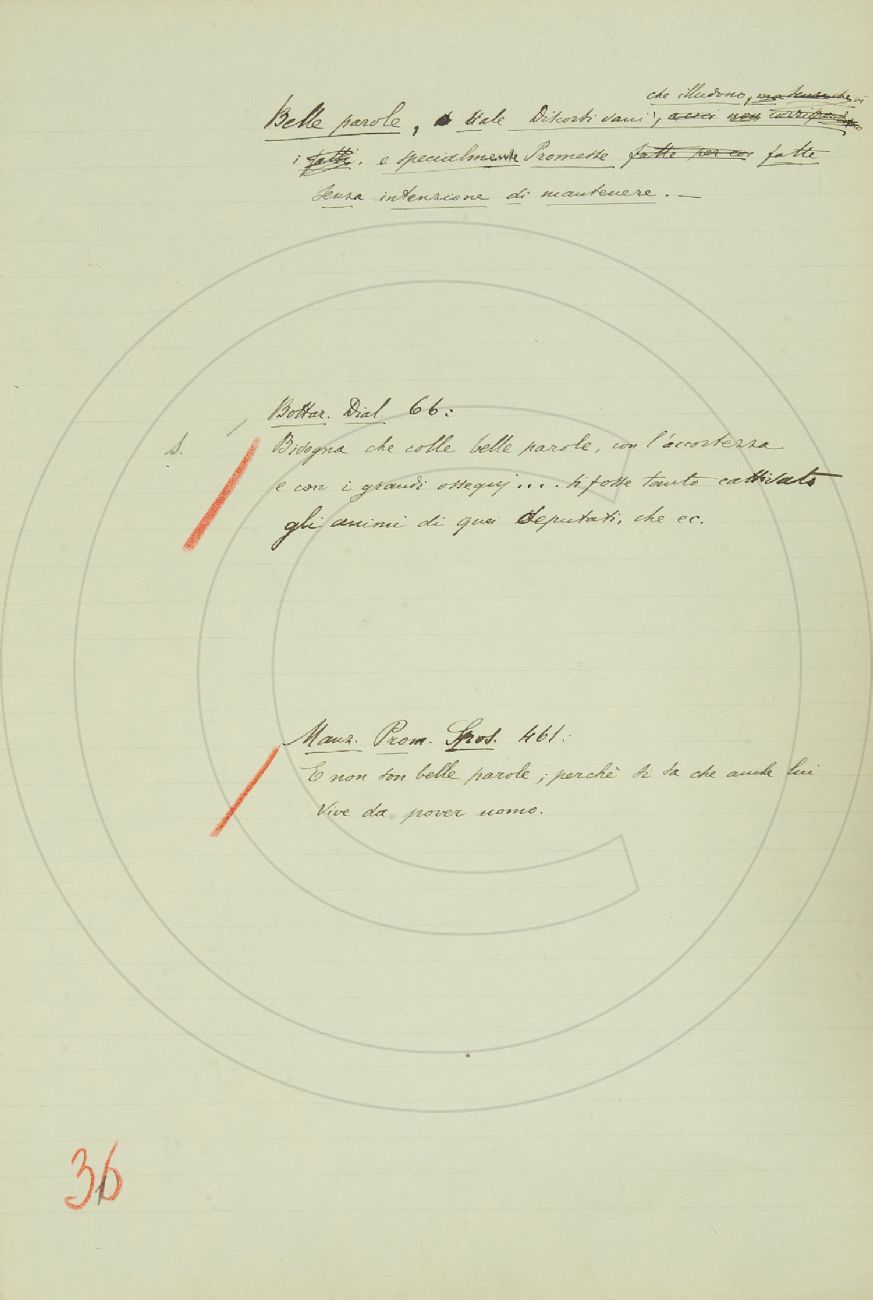 che illudono, ma senza che vi
Belle parole, vale Discorsi vani, a cui non corrispondono
i fatti. e specialmente Promesse fatte per cos fatte
senza intenzione di mantenere. —
Bottar. Dial. 66:
S. Bisogna che colle belle parole, con l'accortezza
e con i grandi ossequj... si fosse tanto cattivato
gli animi di quei deputati, che ec.
Manz. Prom. Spos. 461:
E non son belle parole; perchè si sa che anche lui
vive da pover uomo.
36